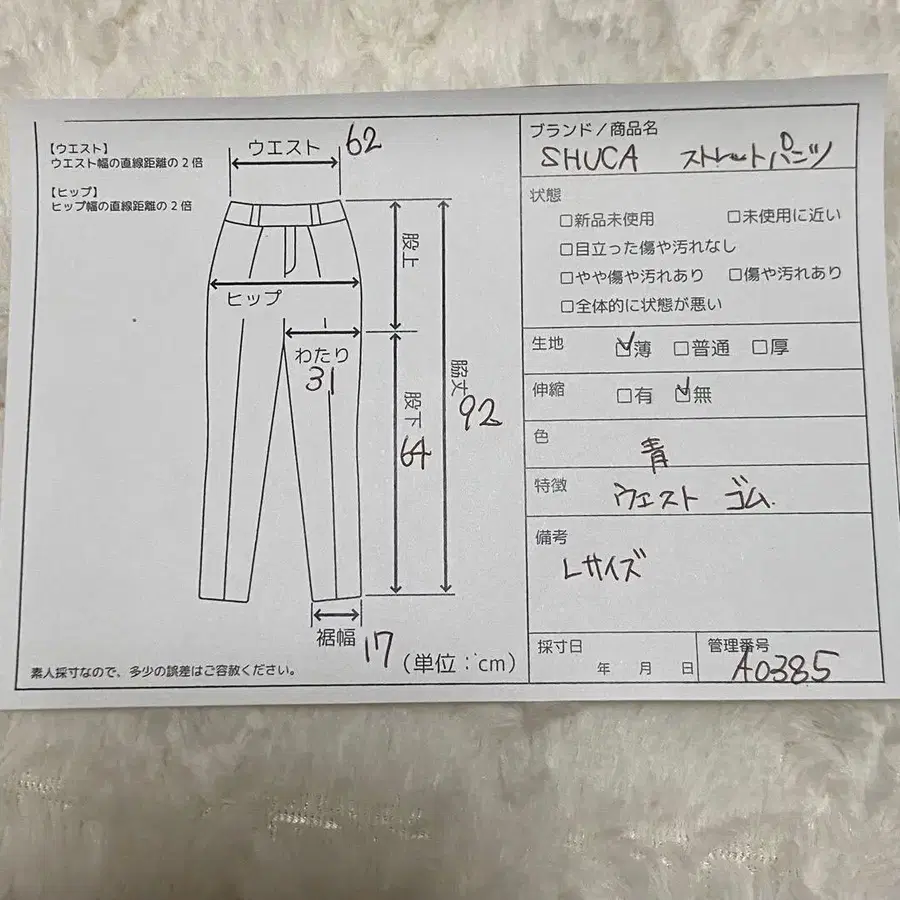 【ウエスト】
ウエスト幅の直線距離の2倍
【ヒップ】
ヒップ幅の直線距離の2倍
ウエスト 62
股上
ヒップ
わたり
31
脇丈
92
股下
64
裾幅 17
(単位:cm)
素人採寸なので、多少の誤差はご容赦ください。
ブランド/商品名
SHUCA ストレットパンツ
状態
□新品未使用 □未使用に近い
□目立った傷や汚れなし
□やや傷や汚れあり □傷や汚れあり
□全体的に状態が悪い
生地 ☑薄 □普通 □厚
伸縮 □有 ☑無
色
青
特徴
ウエスト ゴム
備考
Lサイズ
採寸日
年 月 日
管理番号
A0385